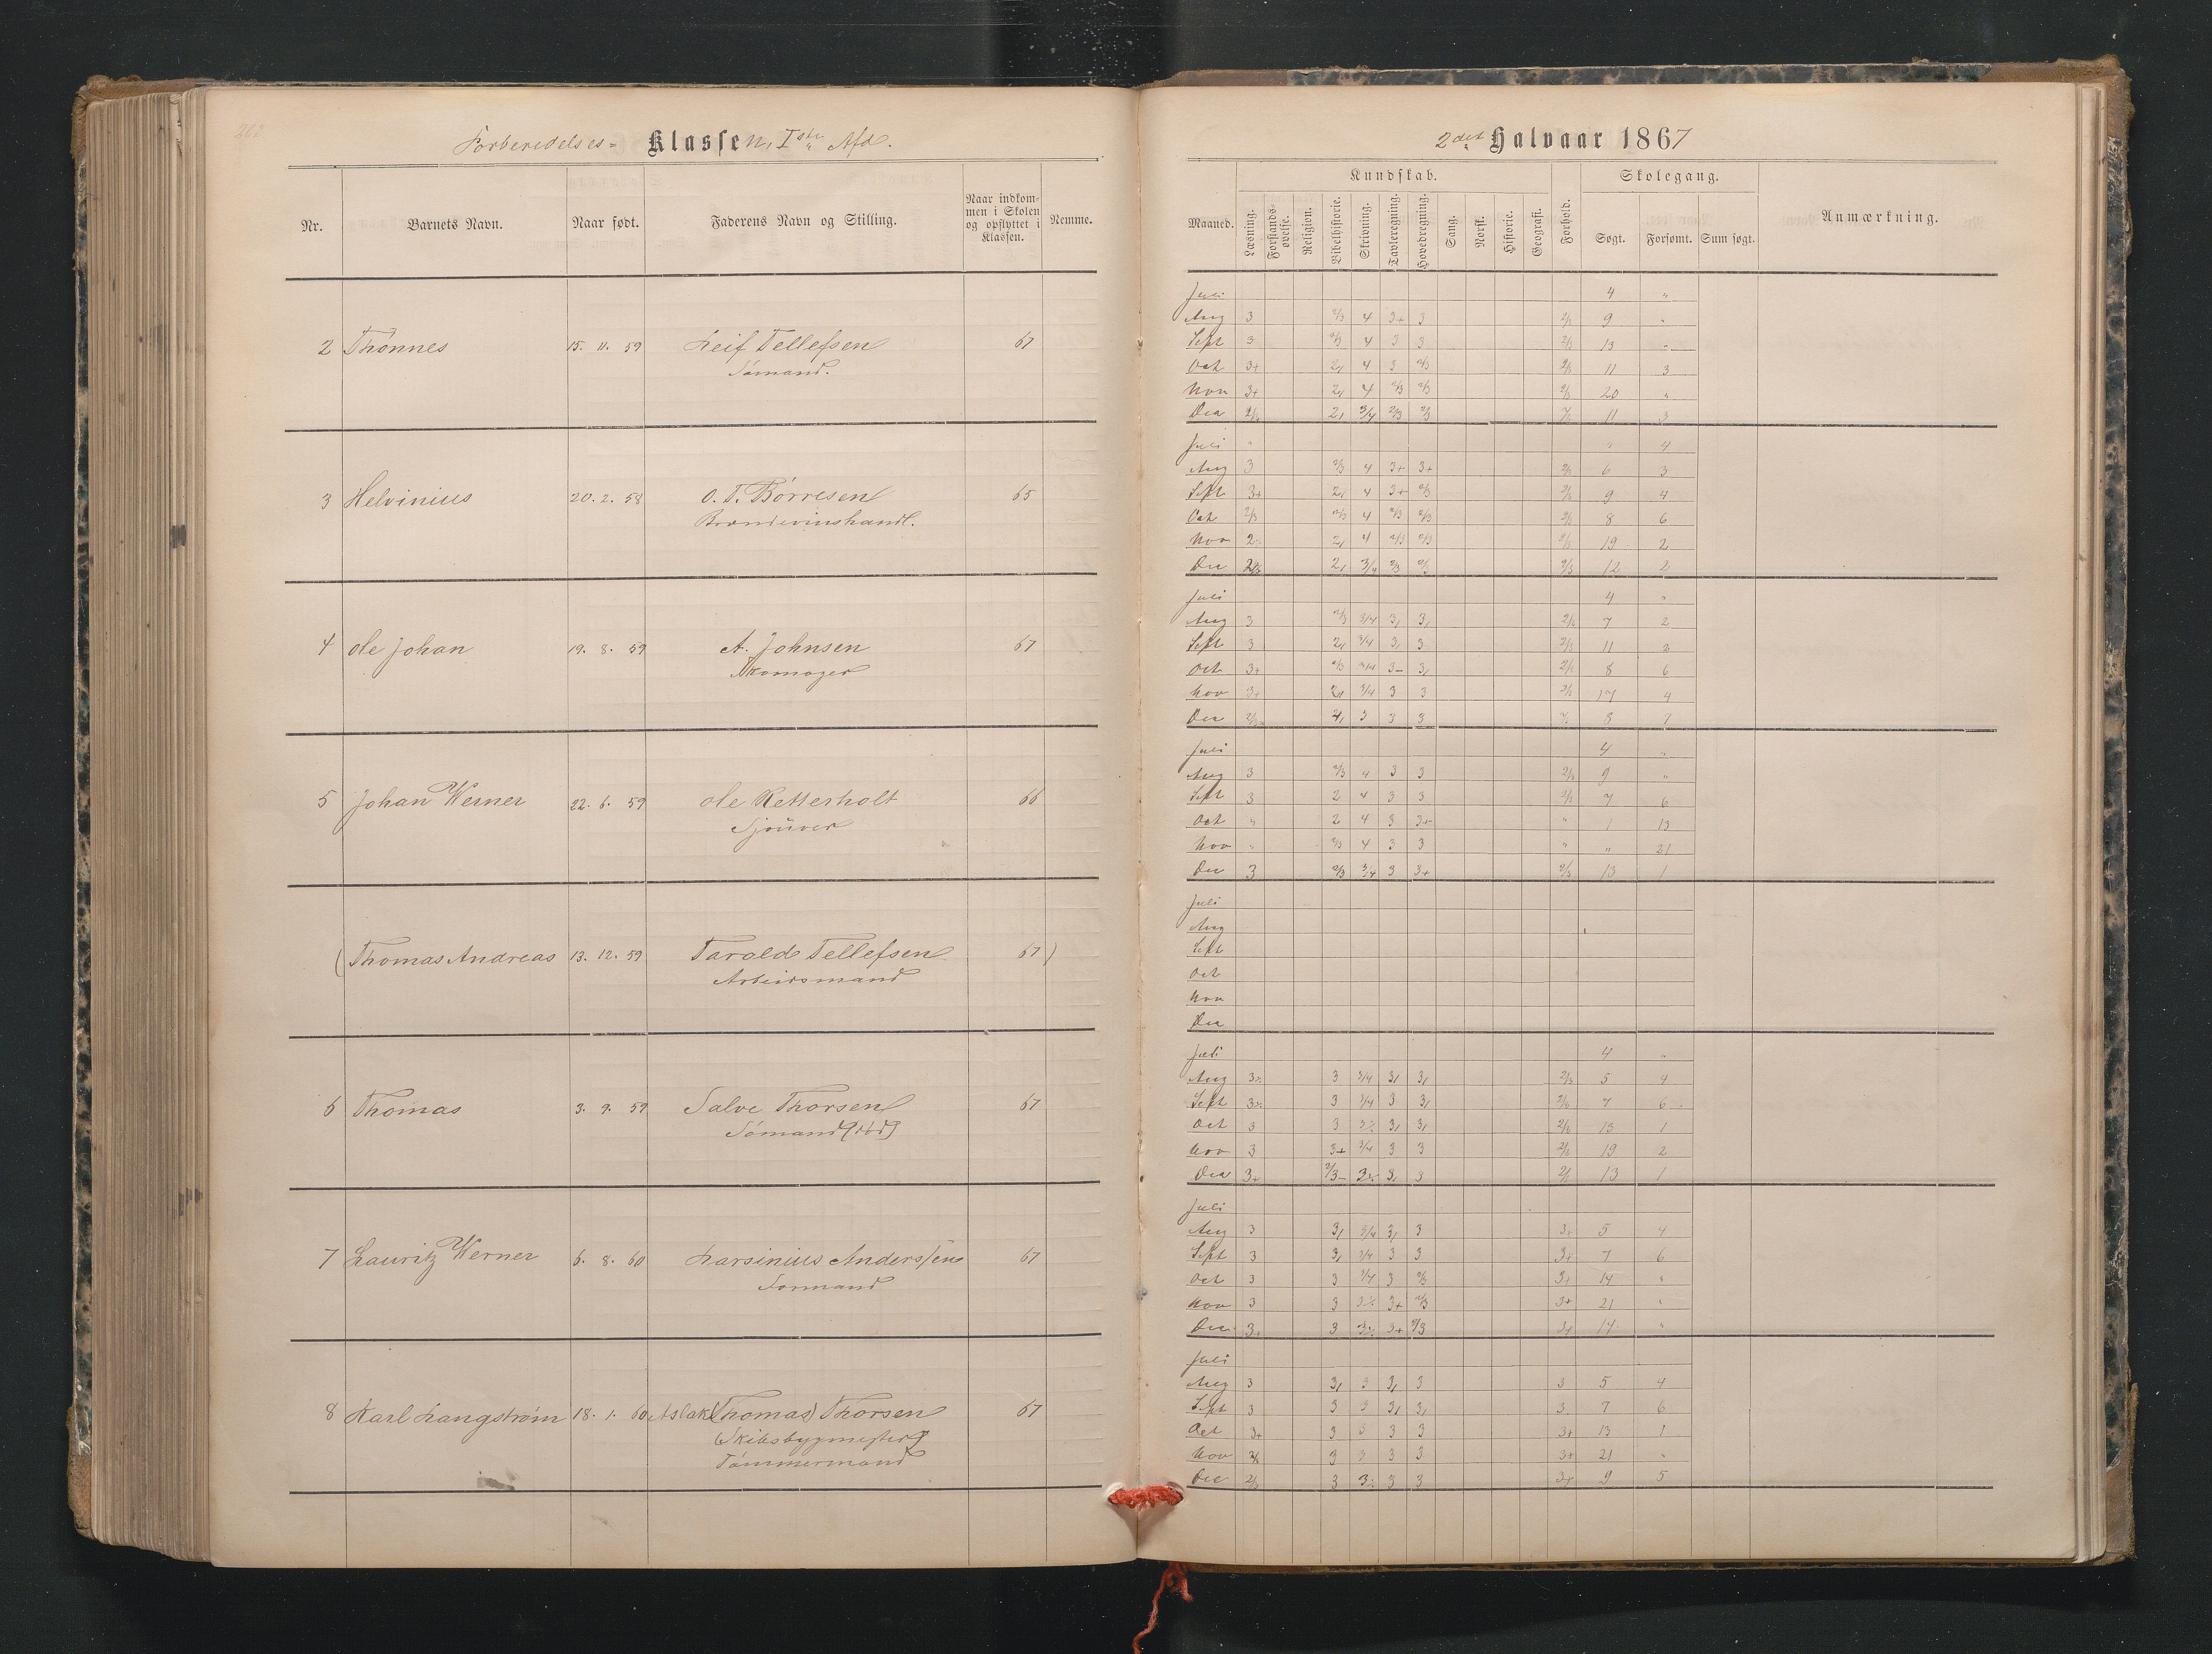 262
Forberedelses- Klassen, Iste Afd.
Nr. Barnets Navn. Naar født. Faderens Navn og Stilling. Naar indkommen i Skolen og opflyttet i Klassen. Nemme.
2 Thønnes 15. 11. 59 Leif Tellefsen 67
Sømand.
3 Helvinius 20. 2. 58 O. T. Børresen 65
Brændevinshandl.
4 Ole Johan 19. 8. 59 A. Johnsen 67
Skomager
5 Johan Werner 22. 6. 59 Ole Retterholt 66
Sjouver
(Thomas Andreas 13. 12. 59 Tarald Tellefsen 67)
Arbeidsmand
6 Thomas 3. 9. 59 Salve Thorsen 67
Sømand
7 Lauritz Werner 6. 8. 60 Larsinius Anderssen 67
8 Karl Langstrøm 18. 1. 60 Aslak (Thomas) Thorsen 67
(Skibsbygmester)
Tømmermand
2det Halvaar 1867
Kundskab. Skolegang.
Maaned. Læsning. Forstands-øvelse. Religion. Bibelhistorie. Skrivning. Tavleregning. Hovedregning. Sang. Norsk. Historie. Geografi. Forhold. Søgt. Forsømt. Sum søgt. Anmærkning.
Juli 4 "
Aug 3 2/3 4 3+ 3 2/3 9 "
Sept 3 2/3 4 3 3 2/3 13 "
Oct 3+ 4 3 2/3 2/3 11 3
Nov 3+ 4 2/3 2/3 2/3 20 "
Dec 3/4 2/3 2/3 11 3
Juli " " 4
Aug 3 2/3 4 3+ 3+ 2/3 6 3
Sept 3+ 4 3+ 2/3 2/3 9 4
Oct 2/3 2/3 4 2/3 2/3 2/3 8 6
Nov 4 2/3 2/3 2/3 19 2
Dec 3/4 2/3 2/3 12 2
Juli 4 "
Aug 3 2/3 3/4 7 2
Sept 3 3/4 3 2/3 11
Oct 3+ 2/3 3/4 8 6
Nov 3+ 3/4 3 3 17 4
Dec 3 3 3 8 7
Juli 4 "
Aug 3 2/3 4 3 3 2/3 9 "
Sept 3 2 4 3 3 2/3 7 6
Oct " 2 4 3 3+ " 1 13
Nov " 2/3 4 3 3 " " 21
Dec 3 2/3 3/4 3 3+ 2/3 13 1
Juli
Aug
Sept
Oct
Nov
Dec
Juli 4 "
Aug 3 3/4 2/3 5 4
Sept 3 3/4 3 7 6
Oct 3 3 13 1
Nov 3 3+ 3/4 3 3 19 2
Dec 3+ 3 13 1
Juli
Aug 3 3/4 3 3+ 5 4
Sept 3 3/4 3 3 3+ 7 6
Oct 3 3 3/4 3 2/3 3+ 14 "
Nov 3 3 3+ 2/3 3+ 21 "
Dec 3+ 3 3+ 2/3 3+ 14 "
Juli
Aug 3 3 3 3 5 4
Sept 3 3 3 3 7 6
Oct 3+ 3 3 3 3 3+ 13 1
Nov 3 3 3 3 3+ 21 "
Dec 2/3 3 3 3 3+ 9 5